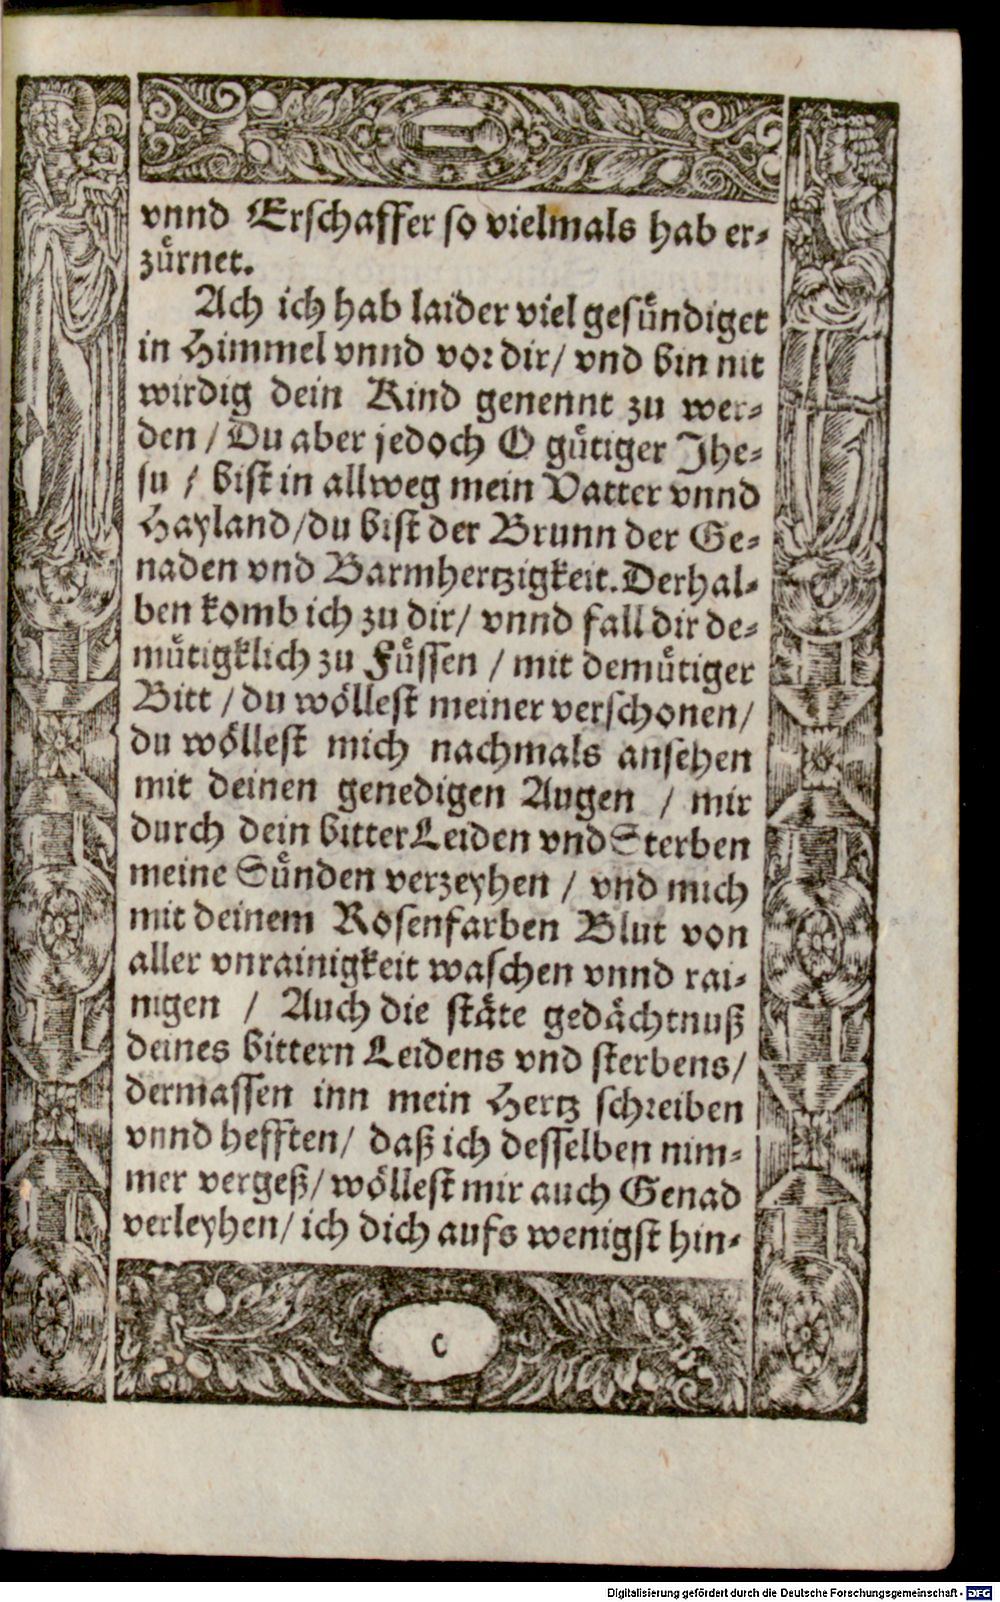 vnnd Erschaffer so vielmals hab er⸗
zuͤrnet.
Ach ich hab laider viel gesuͤndiget
in Himmel vnnd vor dir/ vnd bin nit
wirdig dein Kind genennt zu wer⸗
den / Du aber jedoch O guͤtiger Jhe⸗
su / bist in allweg mein Vatter vnnd
Hayland/du bist der Brunn der Ge⸗
naden vnd Barmhertzigkeit. Derhal⸗
ben komb ich zu dir/ vnnd fall dir de⸗
muͤtigklich zu Fuͤssen / mit demuͤtiger
Bitt / du woͤllest meiner verschonen/
du woͤllest mich nachmals ansehen
mit deinen genedigen Augen / mir
durch dein bitter Leiden vnd Sterben
meine Suͤnden verzeyhen / vnd mich
mit deinem Rosenfarben Blut von
aller vnrainigkeit waschen vnnd rai⸗
nigen / Auch die staͤte gedaͤchtnuß
deines bittern Leidens vnd sterbens/
dermassen inn mein Hertz schreiben
vnnd hefften/ daß ich desselben nim⸗
mer vergeß/ woͤllest mir auch Genad
verleyhen/ ich dich aufs wenigst hin⸗
c
Digitalisierung gefördert durch die Deutsche Forschungsgemeinschaft - DFG